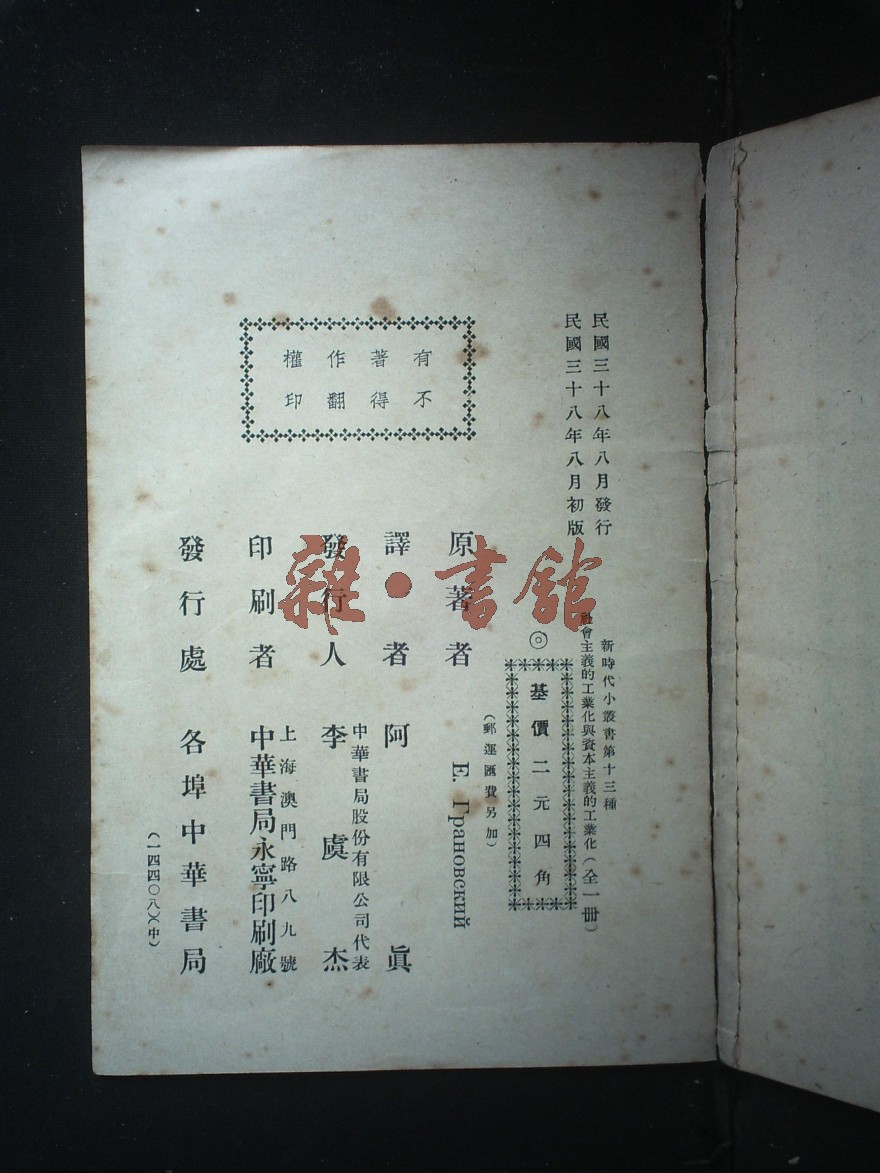 民國三十八年八月發行
民國三十八年八月初版
新時代小叢書第十三種
社會主義的工業化與資本主義的工業化（全一冊）
◎
基價二元四角
（郵運匯費另加）
有著作權
不得翻印
原著者 Е. Грановский
譯者 阿眞
發行人 李虞杰
中華書局股份有限公司代表
印刷者 中華書局永寧印刷廠
上海澳門路八九號
發行處 各埠中華書局
（一四四〇八）（中）
雜·書館